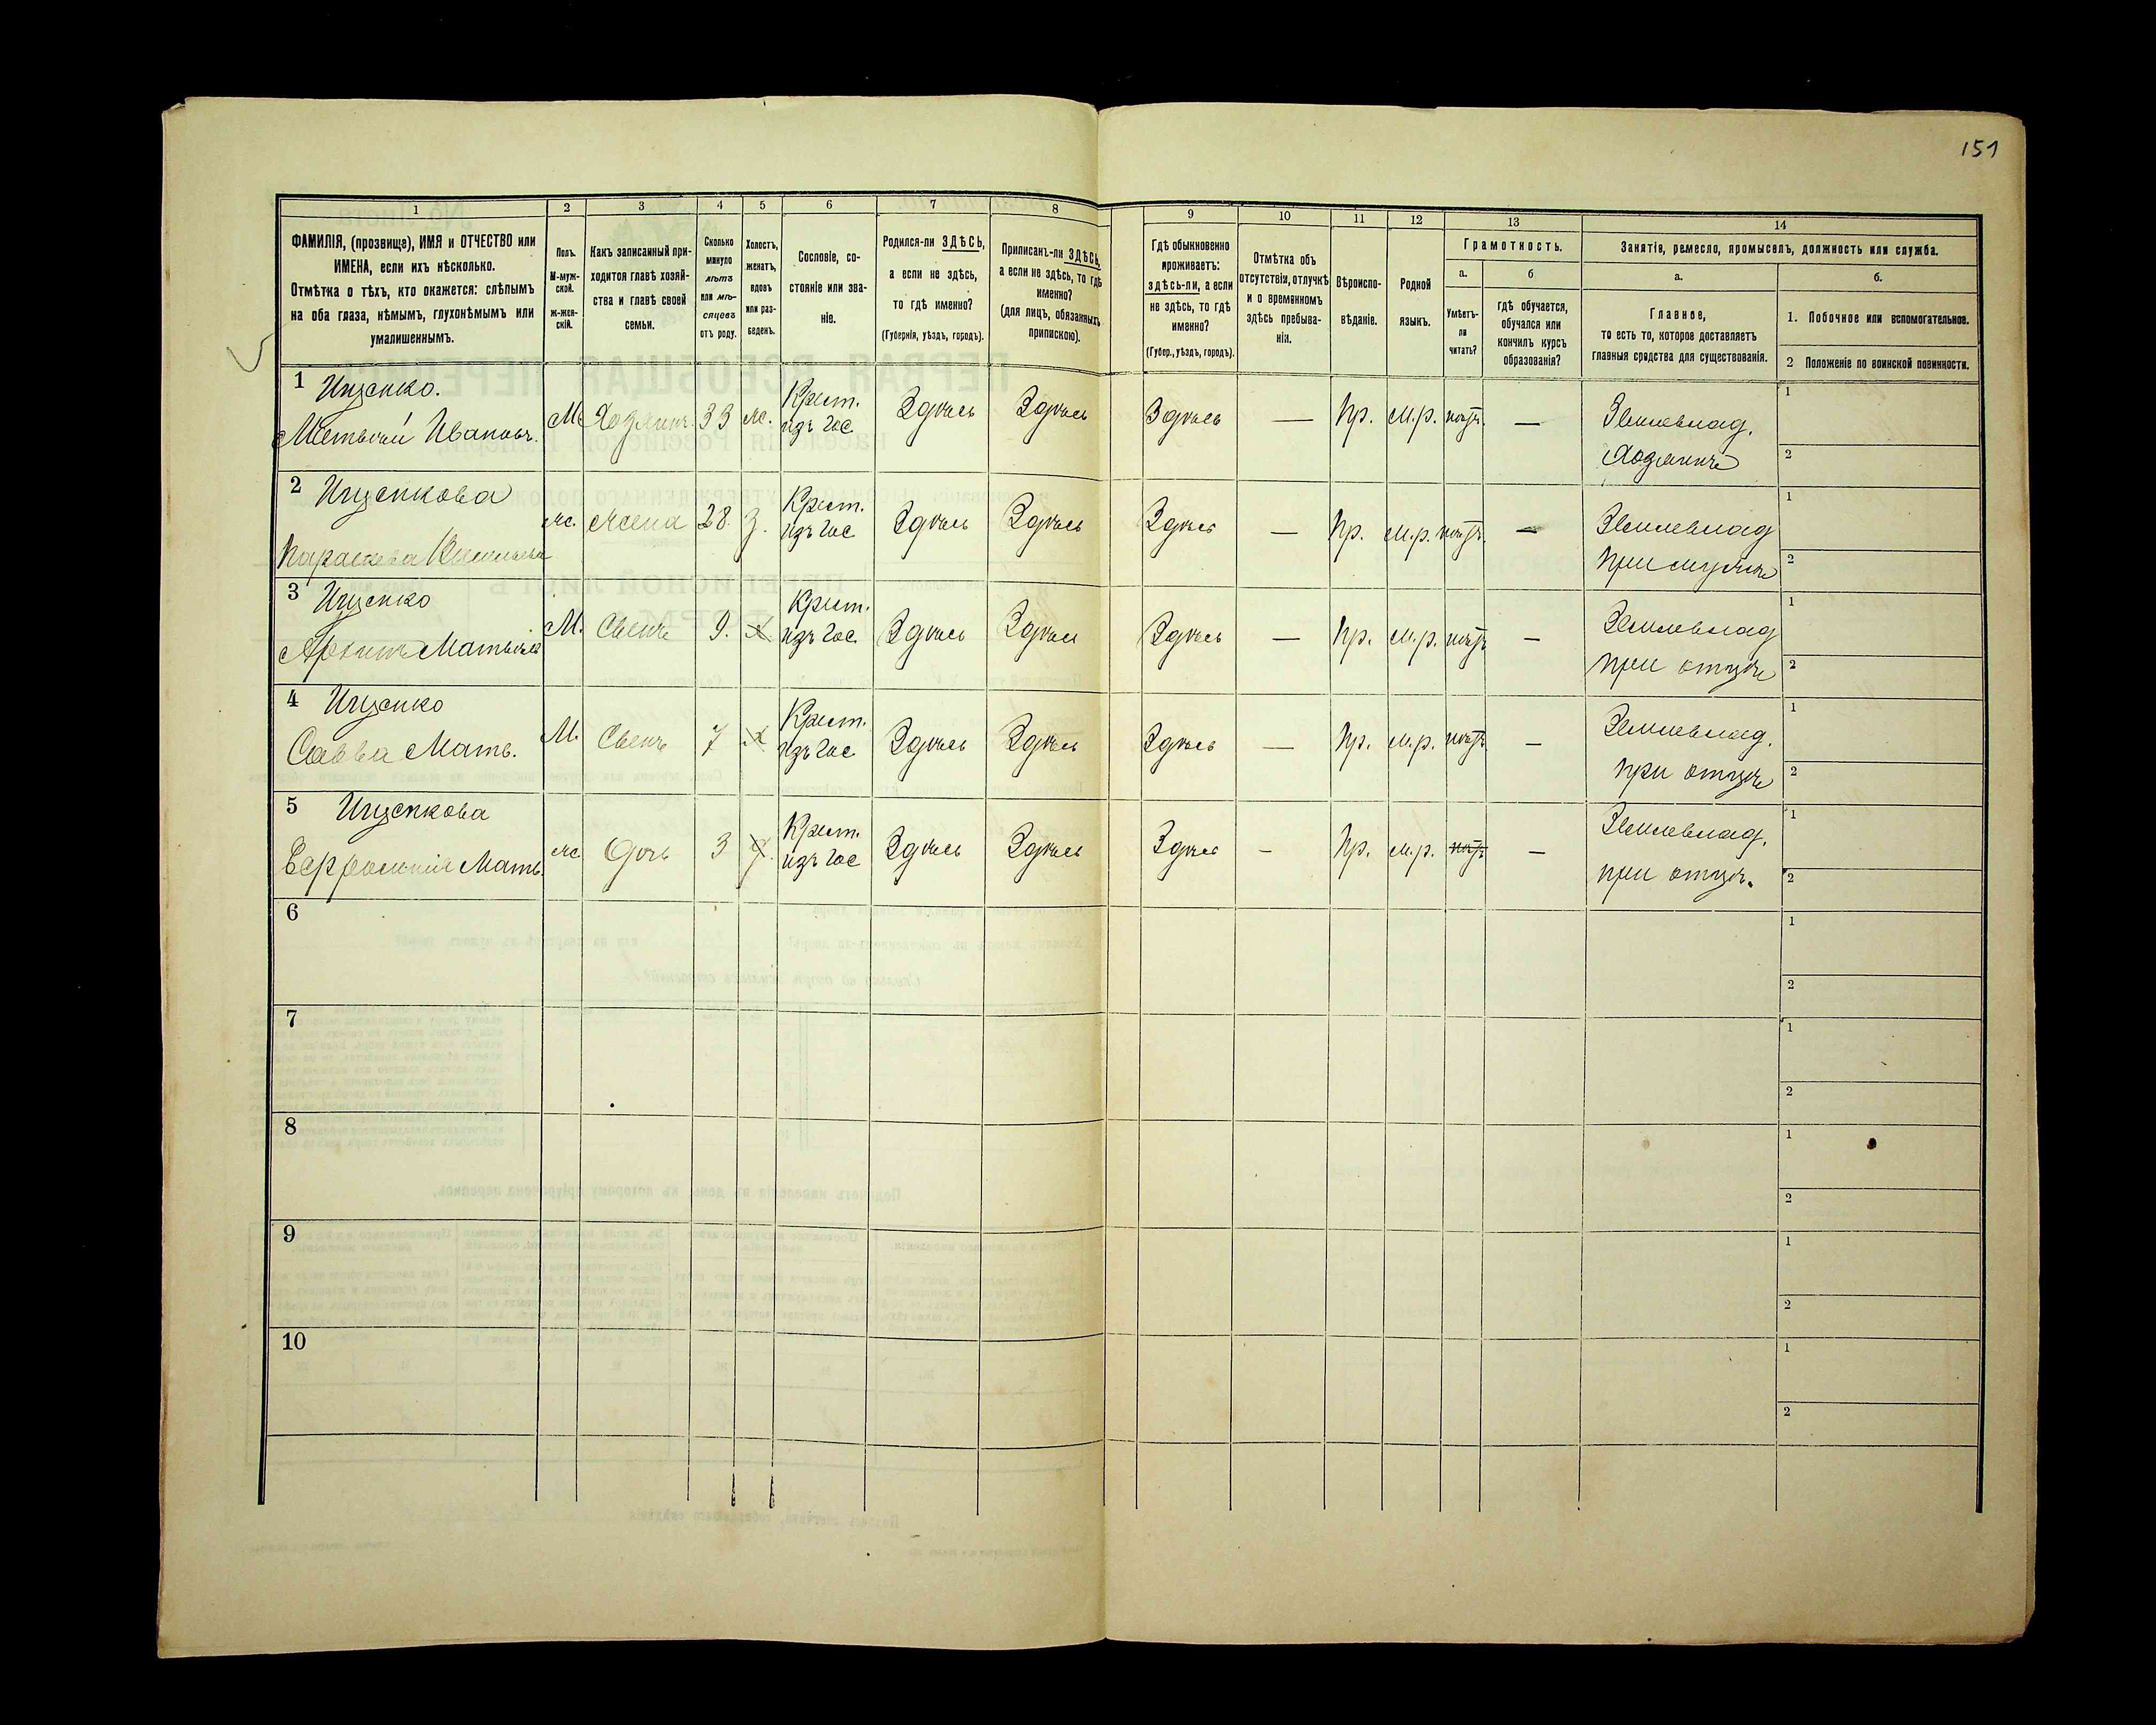 151
1
2
3
4
5
6
7
8
9
10
11
12
13
14
ФАМИЛІЯ, (прозвище), ИМЯ и ОТЧЕСТВО или
ИМЕНА, если ихъ нѣсколько.
Отмѣтка о тѣхъ, кто окажется: слѣпымъ
на оба глаза, нѣмымъ, глухонѣмымъ или
умалишеннымъ.
Полъ.
М-муж-
ской.
ж-жен-
скій.
Какъ записанный при-
ходится главѣ хозяй-
ства и главѣ своей
семьи.
Сколько
минуло
лѣтъ
или мѣ-
сяцевъ
отъ роду.
Холостъ,
женатъ,
вдовъ
или раз-
веденъ.
Сословіе, со-
стояніе или зва-
ніе.
Родился-ли ЗДѢСЬ,
а если не здѣсь,
то гдѣ именно?
(Губернія, уѣздъ, городъ).
Приписанъ-ли ЗДѢСЬ,
а если не здѣсь, то гдѣ
именно?
(для лицъ, обязанныхъ
припискою).
Гдѣ обыкновенно
проживаетъ:
здѣсь-ли, а если
не здѣсь, то гдѣ
именно?
(Губер., уѣздъ, городъ).
Отмѣтка объ
отсутствіи, отлучкѣ
и о временномъ
здѣсь пребыва-
ніи.
Вѣроиспо-
вѣданіе.
Родной
языкъ.
Грамотность.
а.
б
Умѣетъ-
ли
читать?
гдѣ обучается,
обучался или
кончилъ курсъ
образованія?
Занятія, ремесло, промыселъ, должность или служба.
а.
б.
Главное,
то есть то, которое доставляетъ
главныя средства для существованія.
1. Побочное или вспомогательное.
2 Положеніе по воинской повинности.
1 Ищенко.
Матвѣй Ивановъ.
М Хозяинъ. 33 ж. Крест. изъ гос Здѣсь Здѣсь Здѣсь — Пр. м.р. нѣтъ — Землевлад.
Хозяинъ
1
2
2 Ищенкова
Параскева
ж. жена 28. з. Крест. изъ гос Здѣсь Здѣсь Здѣсь — Пр. м.р. нѣтъ — Землевлад
при мужѣ
1
2
3 Ищенко
Матвѣевъ
М. Сынъ 9. х. Крест. изъ гос Здѣсь Здѣсь Здѣсь — Пр. м.р. нѣтъ — Землевлад
при отцѣ
1
2
4 Ищенко
Савва Матв.
М. Сынъ 7 х Крест. изъ гос Здѣсь Здѣсь Здѣсь — Пр. м.р. нѣтъ — Землевлад.
при отцѣ
1
2
5 Ищенкова
Ефросинія Матв.
ж. дочь 3 д. Крест. изъ гос Здѣсь Здѣсь Здѣсь — Пр. м.р. нѣтъ — Землевлад.
при отцѣ.
1
2
6
1
2
7
1
2
8
1
2
9
1
2
10
1
2